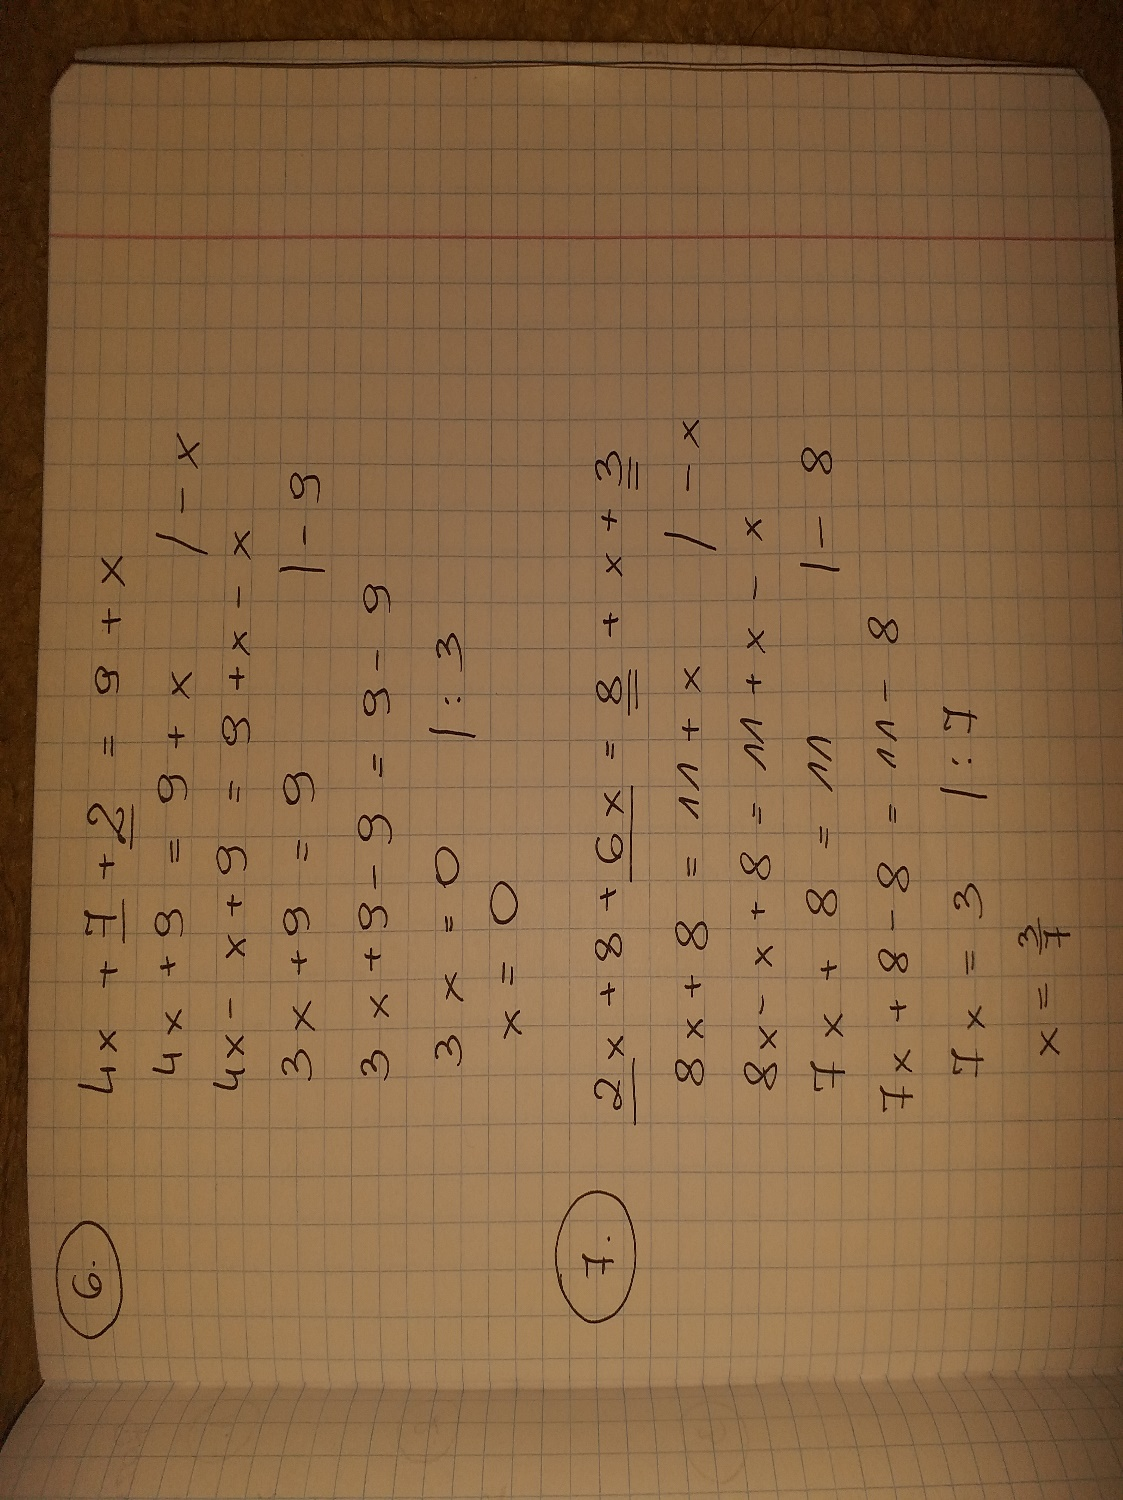 6.
4x + 7 + 2 = 9 + x
4x + 9 = 9 + x / - x
4x - x + 9 = 9 + x - x
3x + 9 = 9 | - 9
3x + 9 - 9 = 9 - 9
3x = 0 | : 3
x = 0
7.
2x + 8 + 6x = 8 + x + 3
8x + 8 = 11 + x / - x
8x - x + 8 = 11 + x - x
7x + 8 = 11 | - 8
7x + 8 - 8 = 11 - 8
7x = 3 | : 7
x = 3/7